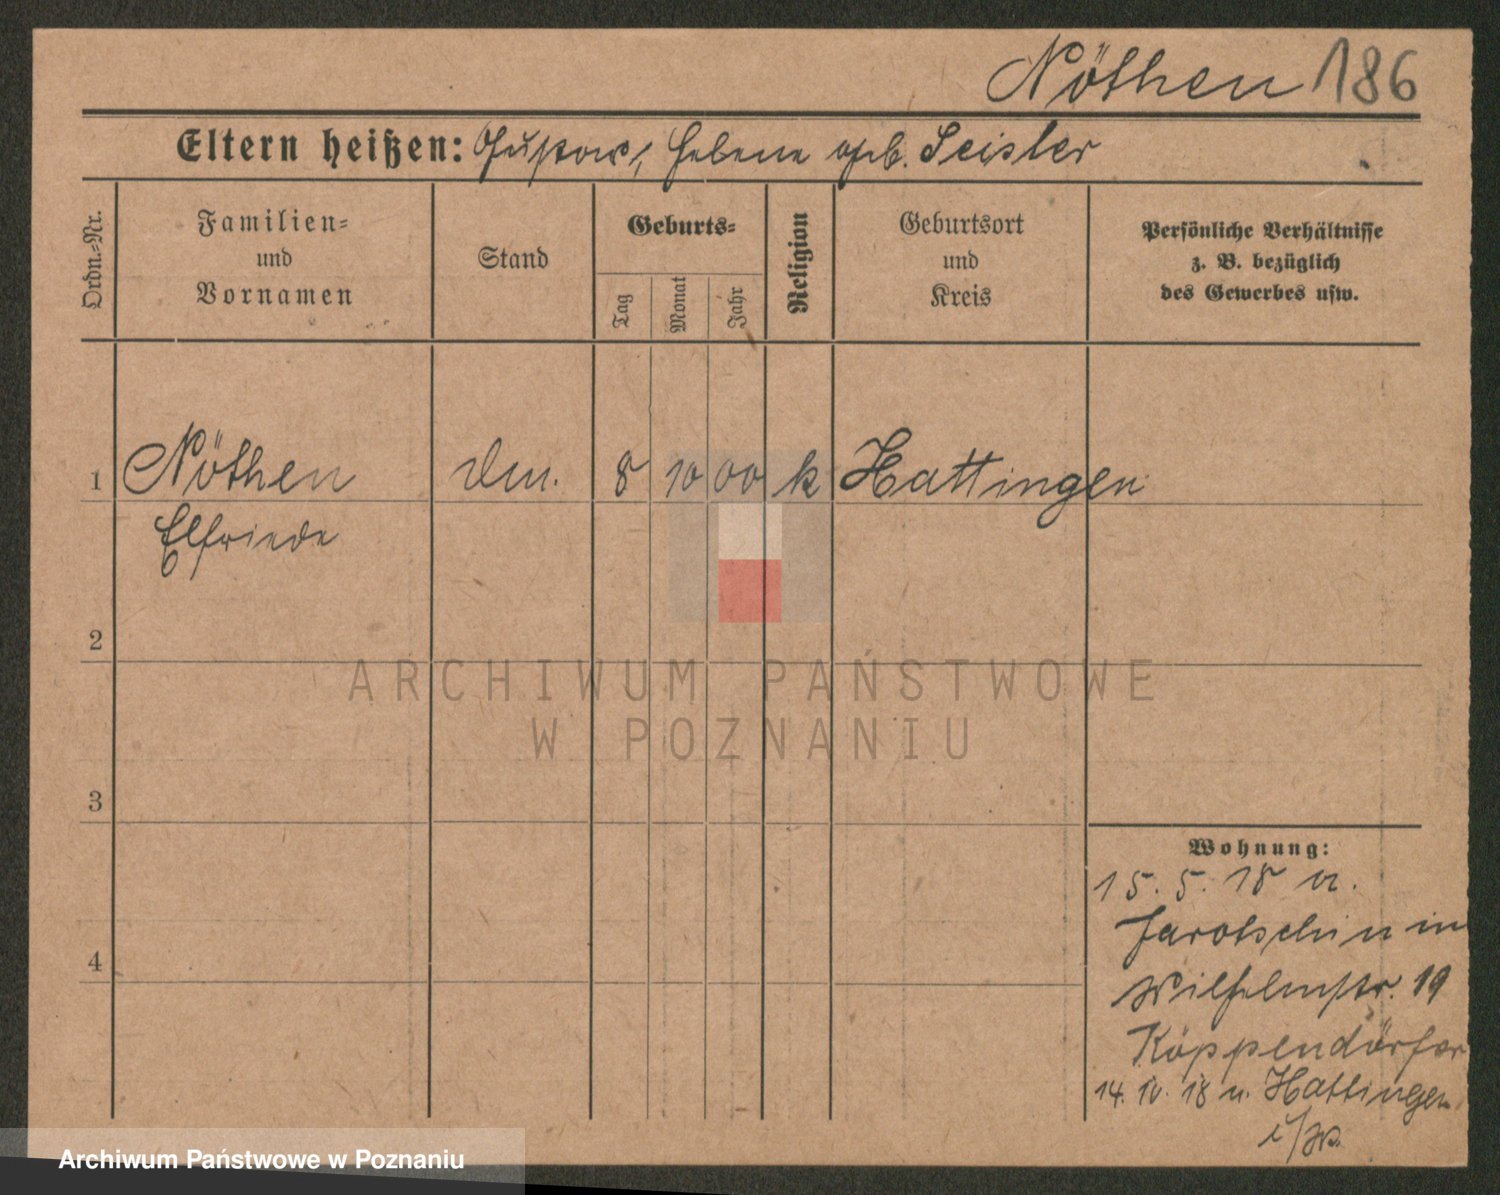 Nöthen 186
Eltern heißen: Gustav, Helene geb. Seisler
Ordn.-Nr.
Familien-
und
Vornamen
Stand
Geburts-
Tag
Monat
Jahr
Religion
Geburtsort
und
Kreis
Persönliche Verhältnisse
z. B. bezüglich
des Gewerbes usw.
1 Nöthen 8 10 00 k Hattingen
Elfriede
2
3
4
Wohnung:
15. 5. 18 v.
Jarotschin in
Wilhelmstr. 19
Köppendörfer
14. 10. 18 n. Hattingen
i/W.
ARCHIWUM PAŃSTWOWE
W POZNANIU
Archiwum Państwowe w Poznaniu